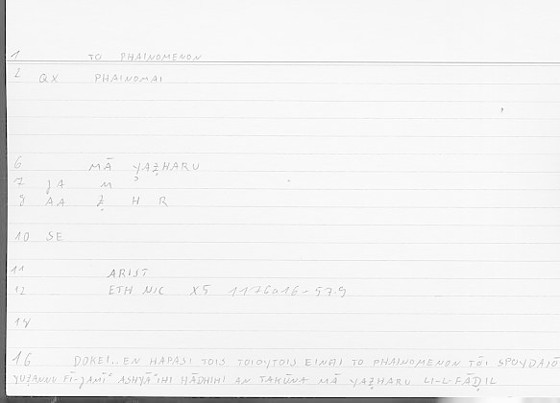 1 TO PHAINOMENON
2 QX PHAINOMAI
6 MĀ YAẒHARU
7 JA M
8 AA Ẓ H R
10 SE
11 ARIST
12 ETH NIC X5 1176a16-
14
16 DOKEI.. EN HAPASI TOIS TOIOYTOIS EINAI TO PHAINOMENON TŌI SPOYDAIŌ
FĪ-JAMĪʿ ASHYĀʾIHI HĀDHIHI AN TAKŪNA MĀ YAẒHARU LI-L-FĀḌIL